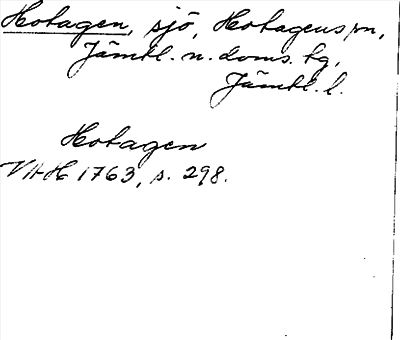 Hotagen, sjö, Hotagens sn,
Jämtl. n. doms. tg,
Jämtl. l.
Hotagen
VAH 1763, s. 298.